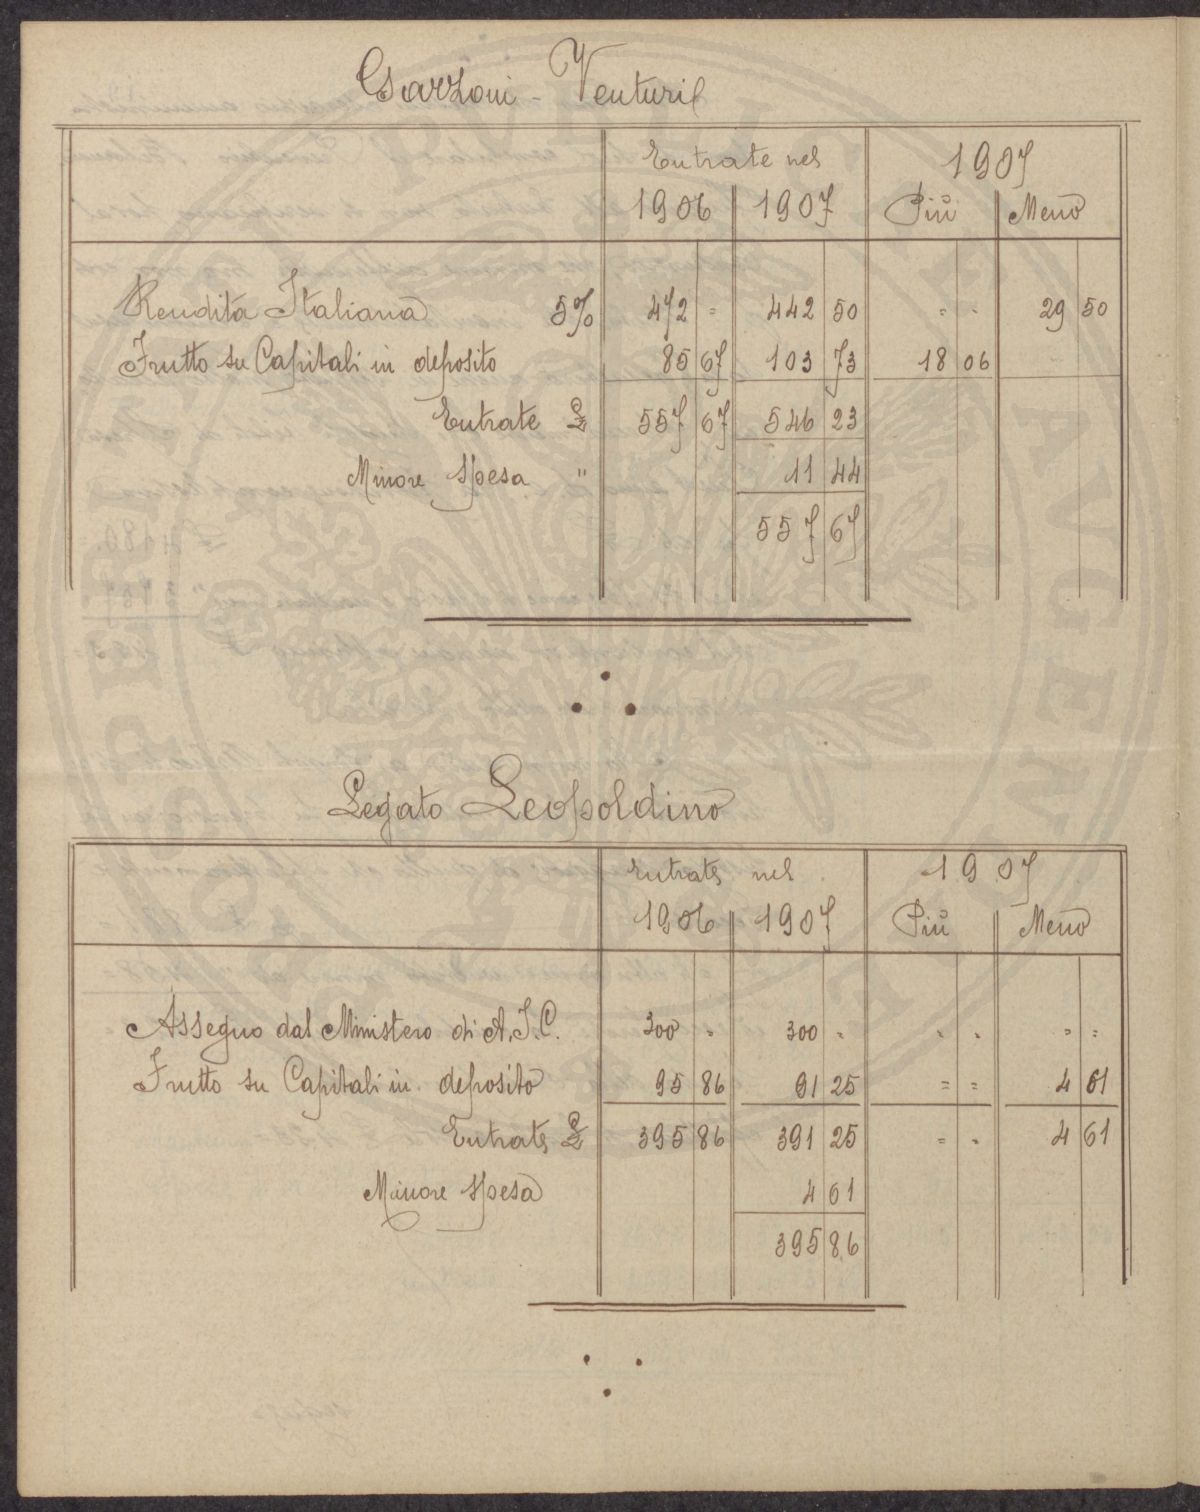 Garzoni - Venturi
Entrate nel 1907
1906 1907 Più Meno
Rendita Italiana 5% 472 = 442 50 = = 29 50
Frutto su Capitali in deposito 85 67 103 73 18 06
Entrate £ 557 67 546 23
Minore Spesa " 11 44
557 67
Legato Leopoldino
Entrate nel 1907
1906 1907 Più Meno
Assegno dal Ministero di A. I. C. 300 = 300 = = = = =
Frutto su Capitali in deposito 95 86 91 25 = = 4 61
Entrate £ 395 86 391 25 = = 4 61
Minore Spesa 4 61
395 86